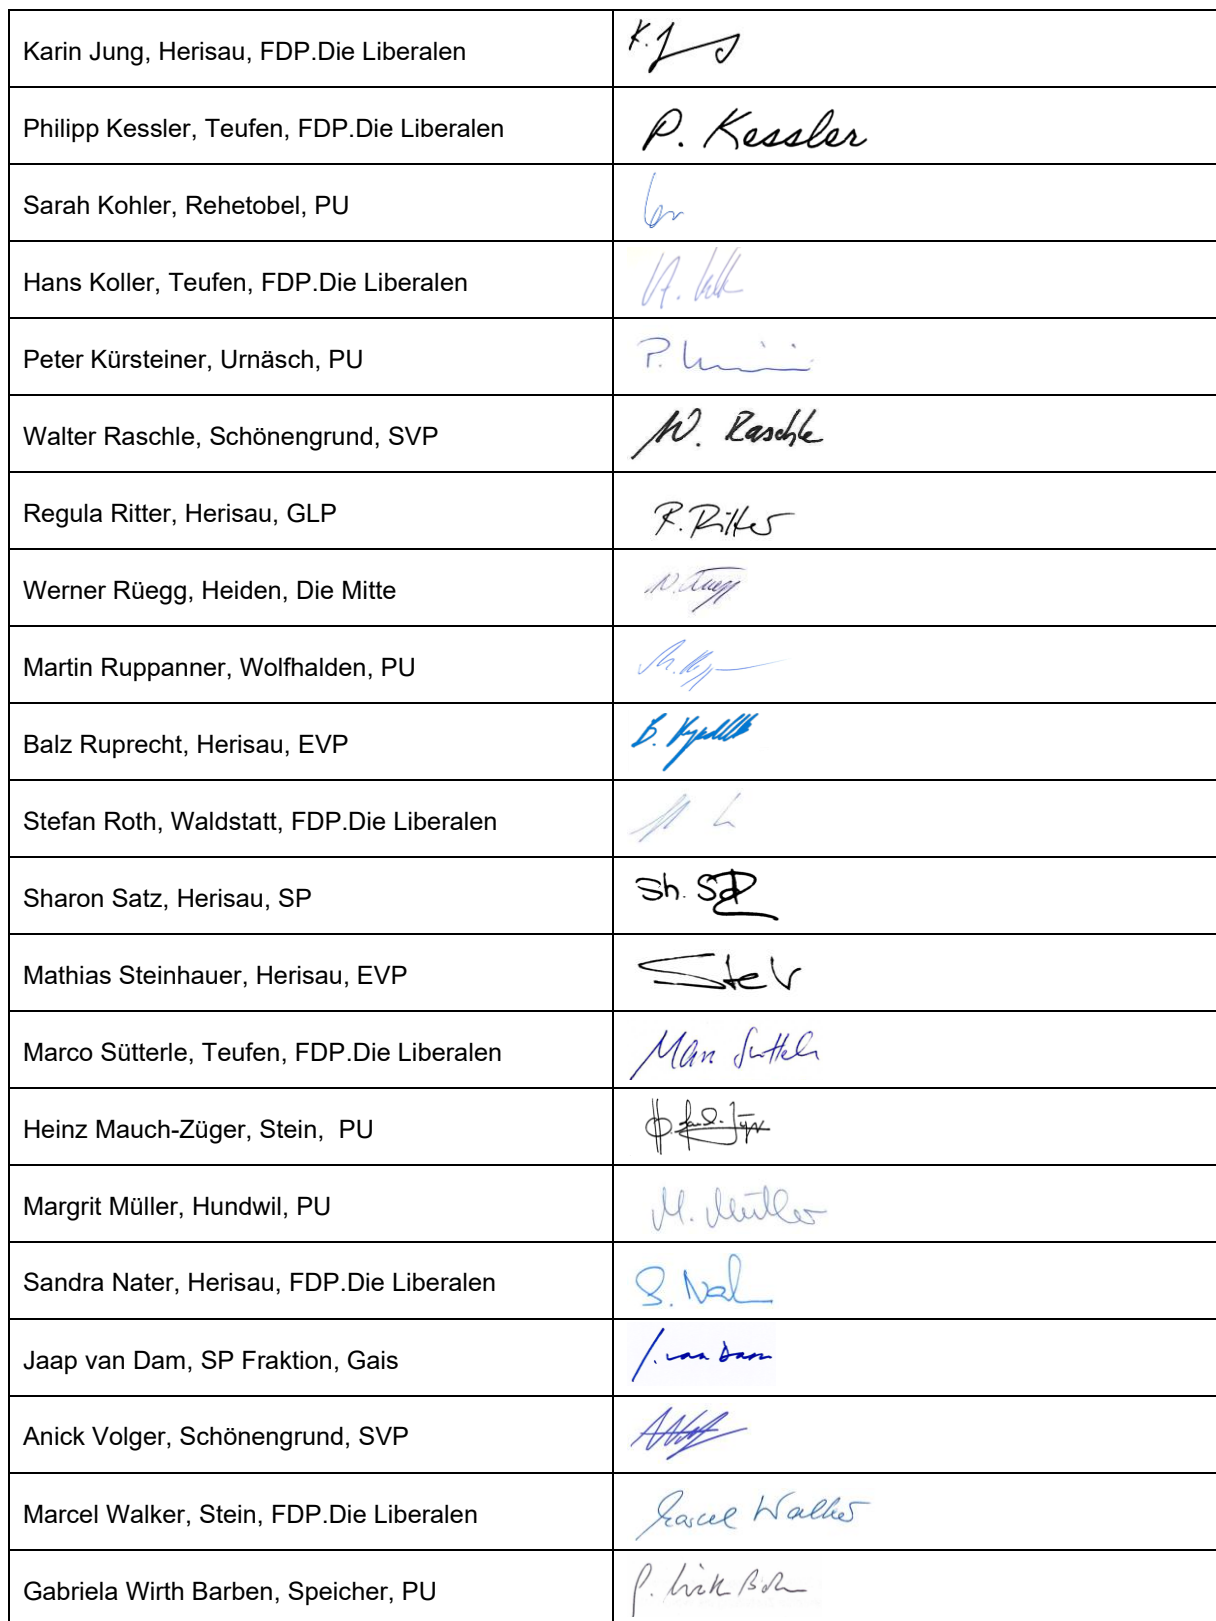 Karin Jung, Herisau, FDP.Die Liberalen K. J
Philipp Kessler, Teufen, FDP.Die Liberalen P. Kessler
Sarah Kohler, Rehetobel, PU
Hans Koller, Teufen, FDP.Die Liberalen
Peter Kürsteiner, Urnäsch, PU P.
Walter Raschle, Schönengrund, SVP W. Raschle
Regula Ritter, Herisau, GLP R. Ritter
Werner Rüegg, Heiden, Die Mitte W. Rüegg
Martin Ruppanner, Wolfhalden, PU
Balz Ruprecht, Herisau, EVP B.
Stefan Roth, Waldstatt, FDP.Die Liberalen
Sharon Satz, Herisau, SP Sh.
Mathias Steinhauer, Herisau, EVP
Marco Sütterle, Teufen, FDP.Die Liberalen
Heinz Mauch-Züger, Stein,  PU
Margrit Müller, Hundwil, PU M. Müller
Sandra Nater, Herisau, FDP.Die Liberalen S.
Jaap van Dam, SP Fraktion, Gais J. van Dam
Anick Volger, Schönengrund, SVP
Marcel Walker, Stein, FDP.Die Liberalen Marcel Walker
Gabriela Wirth Barben, Speicher, PU